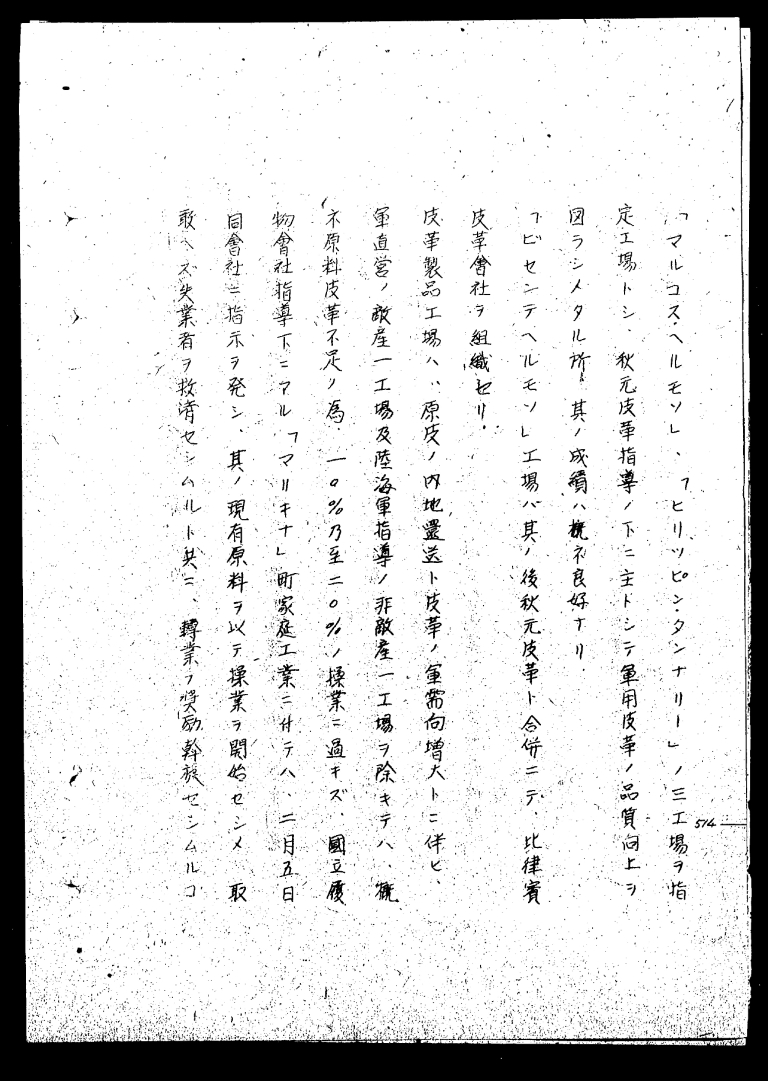 「マルコス・ヘルモソ」、「ヒリッピン・タンナリー」ノ三工場ヲ指
定工場トシ、秋元皮革指導ノ下ニ主トシテ軍用皮革ノ品質向上ヲ
図ラシメタル所、其ノ成績ハ概ネ良好ナリ.
「ビセンテヘルモソ」工場ハ其ノ後秋元皮革ト合併ニテ、比律賓
皮革會社ヲ組織セリ.
皮革製品工場ハ、原皮ノ内地還送ト皮革ノ軍需向増大トニ伴ヒ、
軍直営ノ敵産一工場及陸海軍指導ノ非敵産一工場ヲ除キテハ、概
ネ原料皮革不足ノ為、一〇%乃至二〇%ノ操業ニ過ギズ、國立履
物會社指導下ニアル「マリキナ」町家庭工業ニ付テハ、二月五日
同會社ニ指示ヲ発シ、其ノ現有原料ヲ以テ操業ヲ開始セシメ 取
敢ヘズ失業者ヲ救濟セシムルト共ニ、轉業ヲ奨励斡旋センムルコ
514